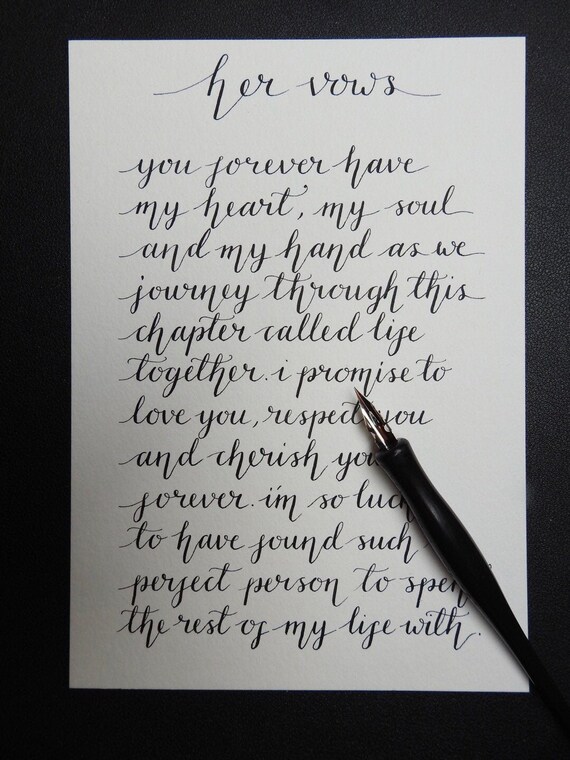 her vows
you forever have
my heart, my soul
and my hand as we
journey through this
chapter called life
together. i promise to
love you, respect you
and cherish you
forever. i'm so
to have found such
perfect person to
the rest of my life with.